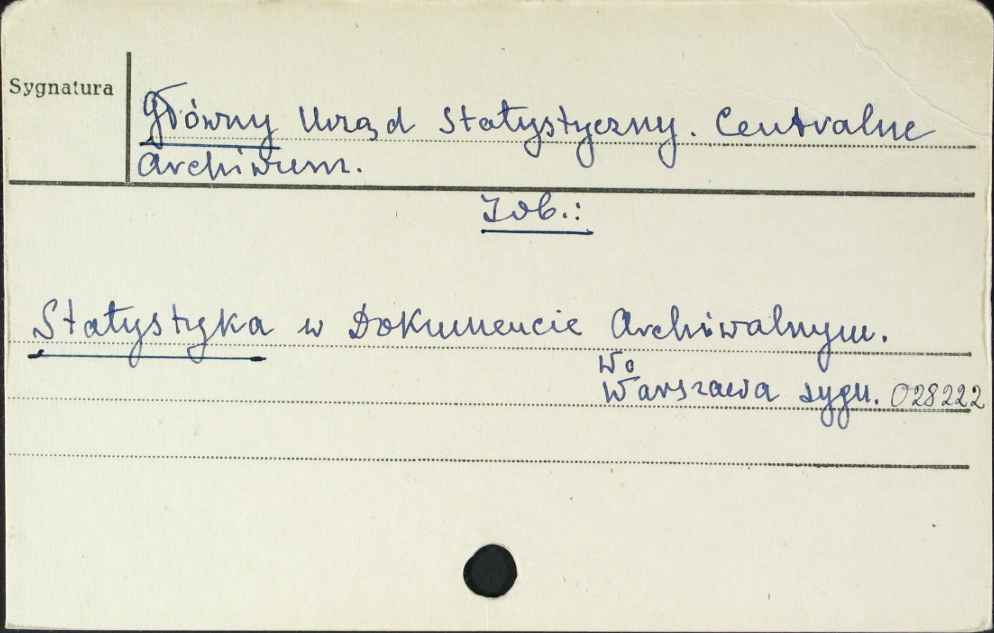 Sygnatura
Główny Urząd Statystyczny. Centralne
Archiwum.
Zob.:
Statystyka w Dokumencie Archiwalnym.
Wo
Warszawa sygn. 028222